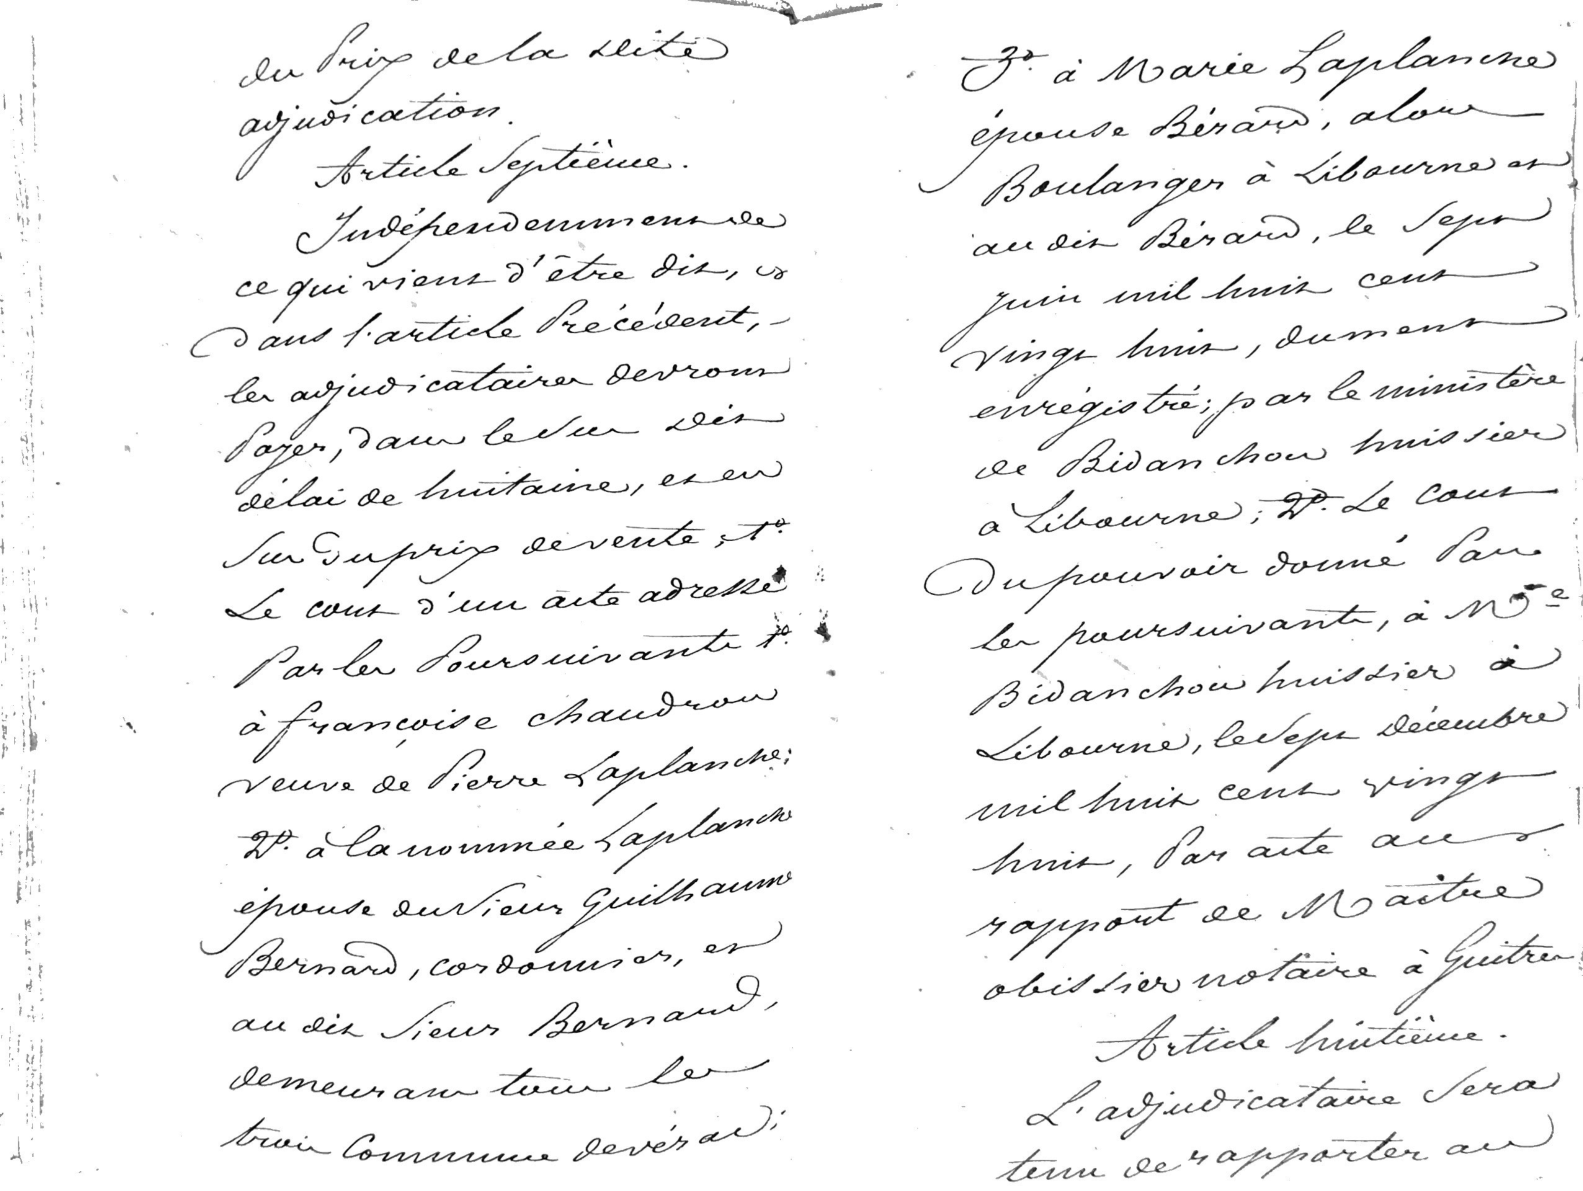 du Prix de la dite
adjudication.
Article Septième.
Indépendemment de
ce qui vient d'être dit, et
dans l'article Précédent, -
les adjudicataires devront
Payer, dans le sus dit
délai de huitaine, et en
sus du prix de vente, 1º
Le cout d'un acte adressé
Par les Poursuivants 1º.
à françoise chaudron
veuve de Pierre Laplanche;
2º. à la nommée Laplanche
épouse du Sieur Guilhaume
Bernard, cordonnier, et
au dit Sieur Bernard,
demeurant tous les
trois Commune de vérac;
3º. à Marie Laplanche
épouse Bérard, alors
Boulanger à Libourne et
au dit Bérard, le Sept
juin mil huit cent
vingt huit, dument
enrégistré; par le ministère
de Bidanchon huissier
à Libourne; 2º. Le Cout
Du pouvoir donné Par
les poursuivants, à Me
Bidanchon huissier à
Libourne, le Sept décembre
mil huit cent vingt
huit, Par acte au
rapport de Maître
obissier notaire à Guitres
Article huitième.
L'adjudicataire Sera
tenu de rapporter au